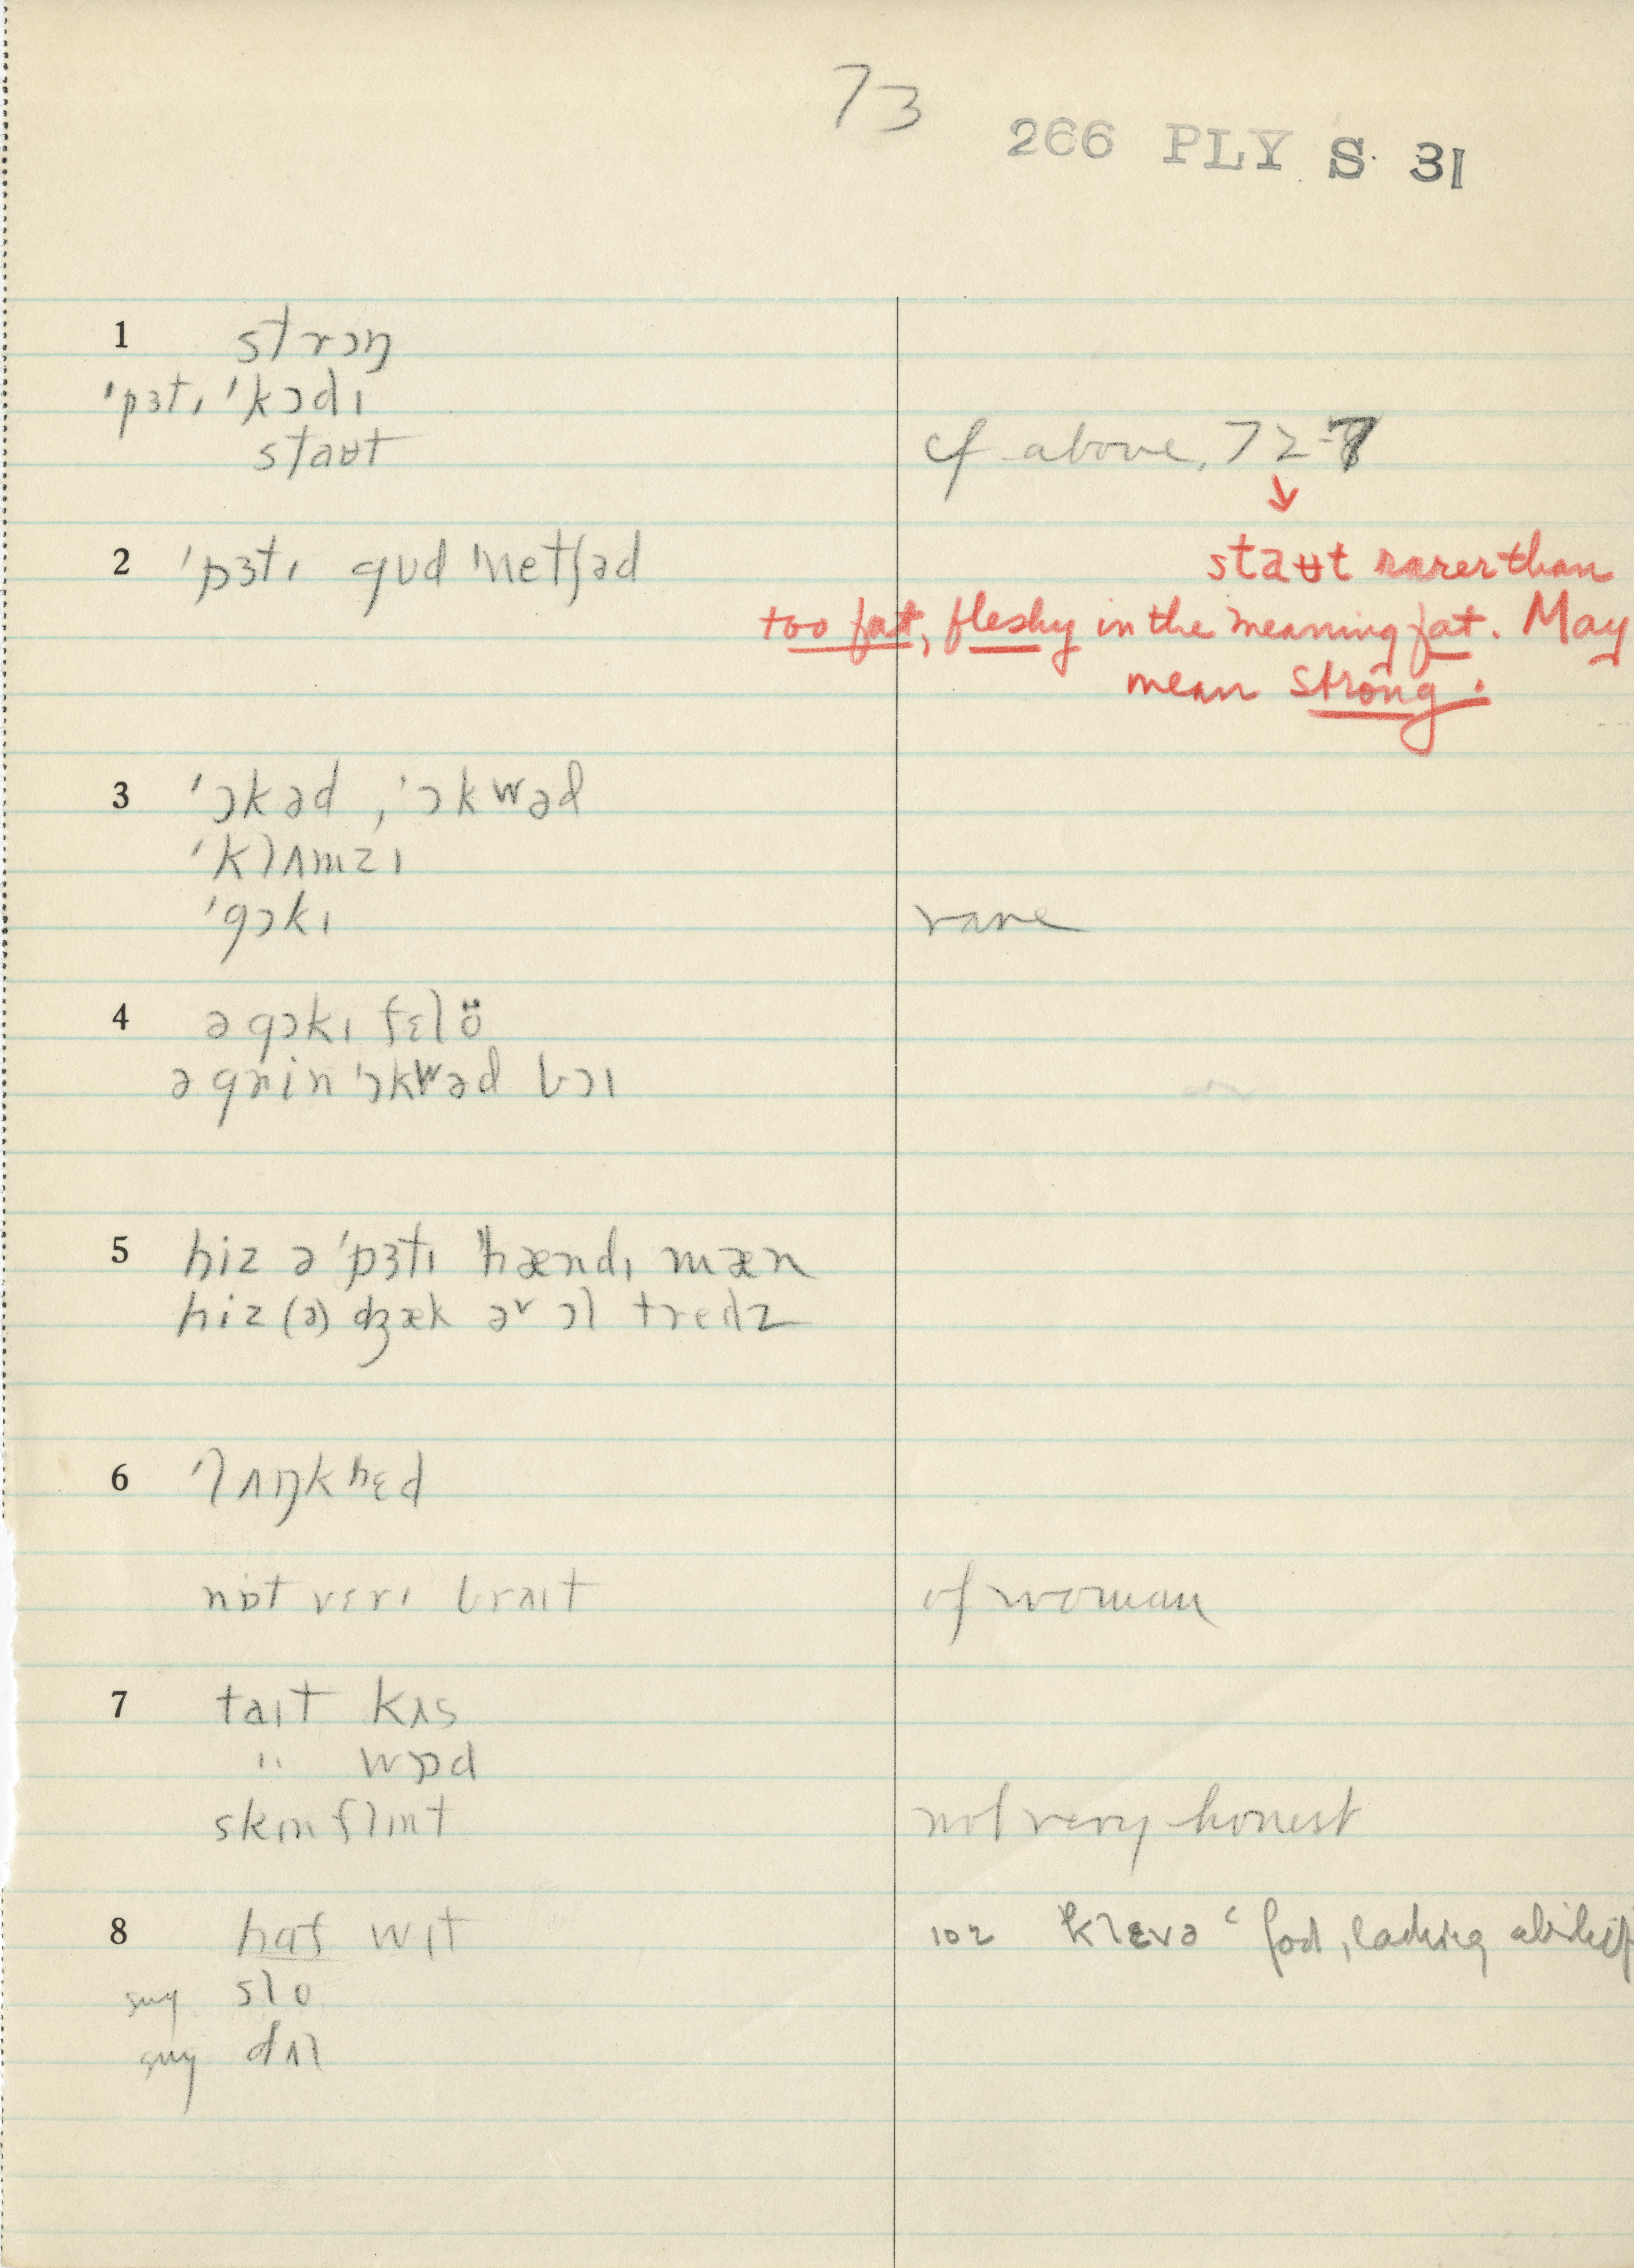 73
266 PLY S. 31
1 strɔŋ
ˈpɜtɪ ˈkɔdɪ
staʉt cf above, 72-7
↓
2 ˈpɜtɪ gʊd ˈnetʃəd
staʉt rarer than
too fat, fleshy in the meaning fat. May
mean strong.
3 ˈɔkəd, ˈɔkwəd
ˈklʌmzɪ
ˈgɔkɪ rare
4 ə gɔkɪ fɛlö
ə grin ˈɔkwəd bɔɪ
5 hiz ə ˈpɜtɪ ˈhændɪ mæn
hiz (ə) ʤæk əv ɔl tredz
6 ˈlʌŋkhɛd
nɒt vɛrɪ braɪt of woman
7 taɪt kʌs
" wɒd
skɪnflɪnt not very honest
8 haf wɪt klɛvə
sug slo
sug dʌl